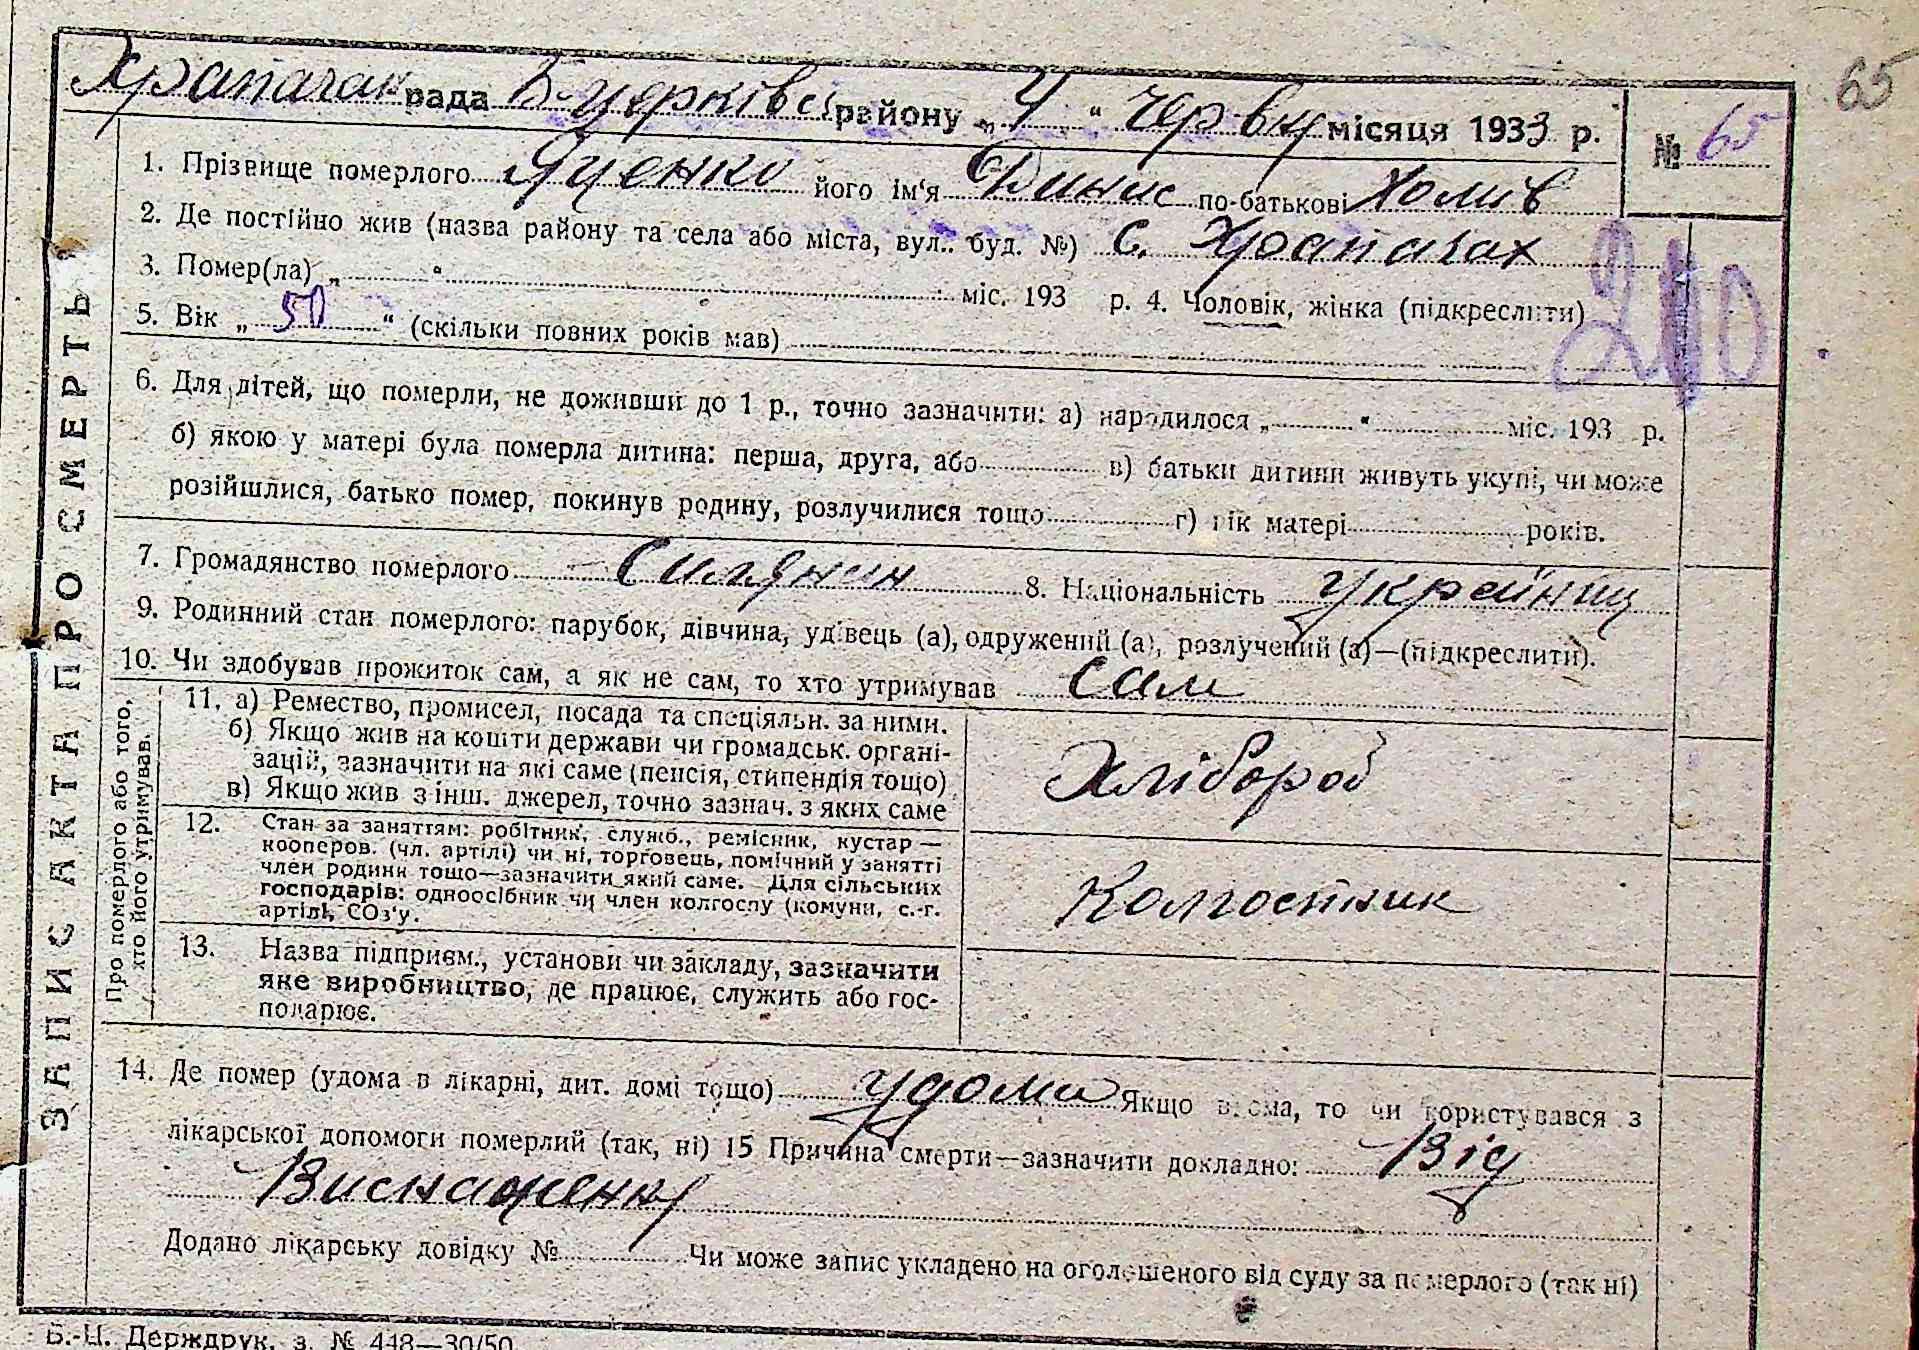 65
Храпачан рада Б-Церківсь району „4“ Червня місяця 1933 р. № 65
1. Прізвище померлого Яценко його ім'я Динис по-батькові Хомів
2. Де постійно жив (назва району та села або міста, вул. буд. №) С. Храпачах
3. Помер(ла) „ “ міс. 193 р. 4. Чоловік, жінка (підкреслити)
5. Вік „50“ (скільки повних років мав)
6. Для дітей, що померли, не доживши до 1 р., точно зазначити: а) народилося „ “ міс. 193 р.
б) якою у матері була померла дитина: перша, друга, або в) батьки дитини живуть укупі, чи може
розійшлися, батько помер, покинув родину, розлучилися тощо г) вік матері років.
7. Громадянство померлого Силянин 8. Національність Українець
9. Родинний стан померлого: парубок, дівчина, удівець (а), одружений (а), розлучений (а)—(підкреслити).
10. Чи здобував прожиток сам, а як не сам, то хто утримував Сам
11. а) Ремество, промисел, посада та спеціяльн. за ними.
б) Якщо жив на кошти держави чи громадськ. органі-
зацій, зазначити на які саме (пенсія, стипендія тощо)
в) Якщо жив з інш. джерел, точно зазнач. з яких саме
Хлібороб
12. Стан за заняттям: робітник, служб., ремісник, кустар —
кооперов. (чл. артілі) чи ні, торговець, помічний у занятті
член родини тощо—зазначити який саме. Для сільських
господарів: одноосібник чи член колгоспу (комуни, с.-г.
артілі, СОз'у.
Колгостник
13. Назва підприєм., установи чи закладу, зазначити
яке виробництво, де працює, служить або гос-
подарює.
14. Де помер (удома в лікарні, дит. домі тощо) удома Якщо вдома, то чи користувався з
лікарської допомоги померлий (так, ні) 15 Причина смерти—зазначити докладно: Від
Виснаження
Додано лікарську довідку № Чи може запис укладено на оголошеного від суду за померлого (так ні)
Б.-Ц. Держдрук. з. № 448—30/50
ЗАПИС АКТА ПРО СМЕРТЬ
Про померлого або того,
хто його утримував.